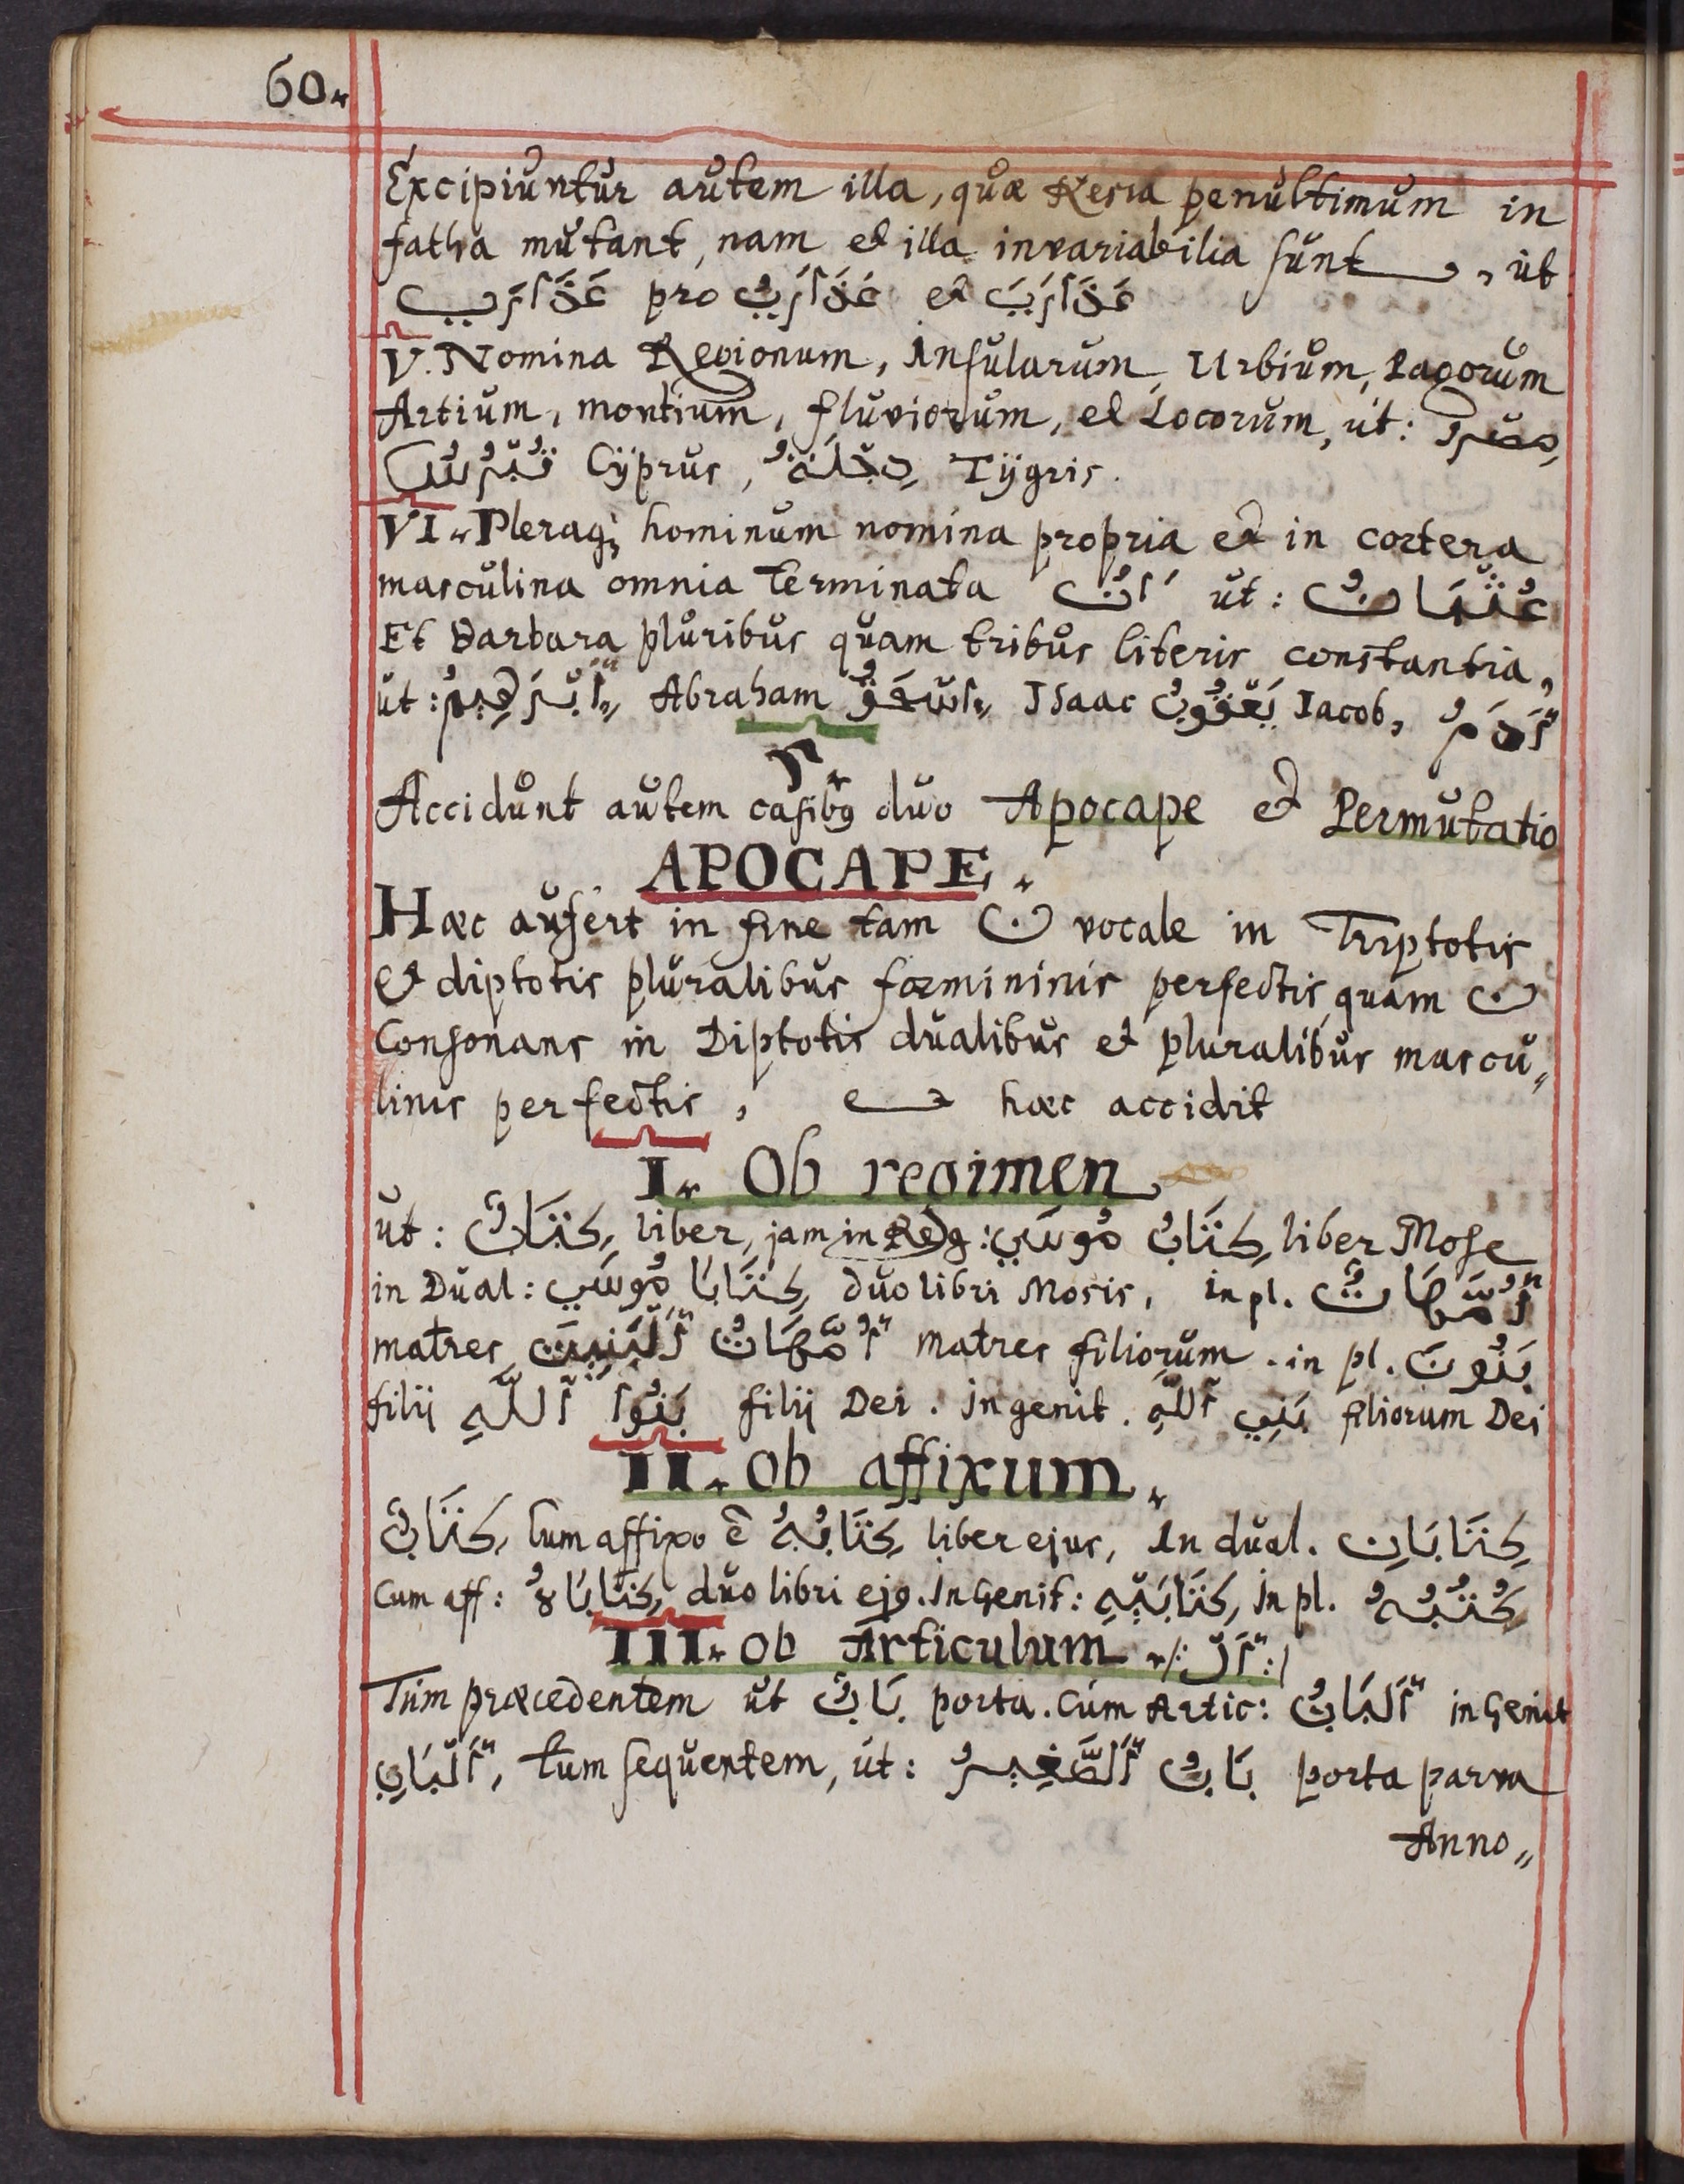 60.
Excipiuntur autem illa, quæ Kesra penultimum in
fatha mutant, nam et illa invariabilia sunt, ut
عَذَارَي pro عَذَارِيُ et عَذَارَيَ
V. Nomina Regionum, Insularum, Urbium, Pagorum
Artium, montium, fluviorum, et Locorum, ut: مِصْرُ
قُبْرُسُ Cÿprus, دِجْلَةُ Tÿgris.
VI. Pleraq; hominum nomina propria et in cœtera
masculina omnia terminata َانُ ut: عُثْمَانُ
Et Barbara pluribus quam tribus literis constantia,
ut: إِبْرَهِيمُ Abraham إِسْحَقُ Isaac يَعْقُوبُ Iacob, أَدَمُ
Accidunt autem casibq duo Apocape et Permutatio
APOCAPE.
Hæc aufert in fine tam ن vocale in Triptotis
et diptotis pluralibus fœmininis perfectis quam ن
Consonans in Diptotis dualibus et pluralibus mascu„
linis perfectis, hæc accidit
I. Ob regimen
ut: كِتَابٌ liber, jam in Reg: كِتَابُ مُوسَي liber Mose
in Dual: كِتَابَا مُوسَي duo libri Mosis, in pl. أُمَّهَاتٌ
matres أُمَّهَاتُ أَلْبَنِينَ matres filiorum. in pl. بَنُونَ
filij بَنُوا أللَّهِ filij Dei. in genit. بَنِي أللَّهِ filiorum Dei
II. Ob affixum.
كِتَابٌ Cum affixo ē كِتَابُهُ liber ejus, In dual. كِتَابَانِ
Cum aff: كِتَابَاهُ duo libri ejq. In Genit: كِتَابَيْهِ in pl. كُتُبُهُ
III. Ob Articulum /: أَلْ :/
Tum præcedentem ut بَابٌ porta. Cum Artic: أَلْبَابُ in Genit
أَلْبَابِ, tum sequentem, ut: بَابُ أَلصَّغِيرُ porta parva
Anno„